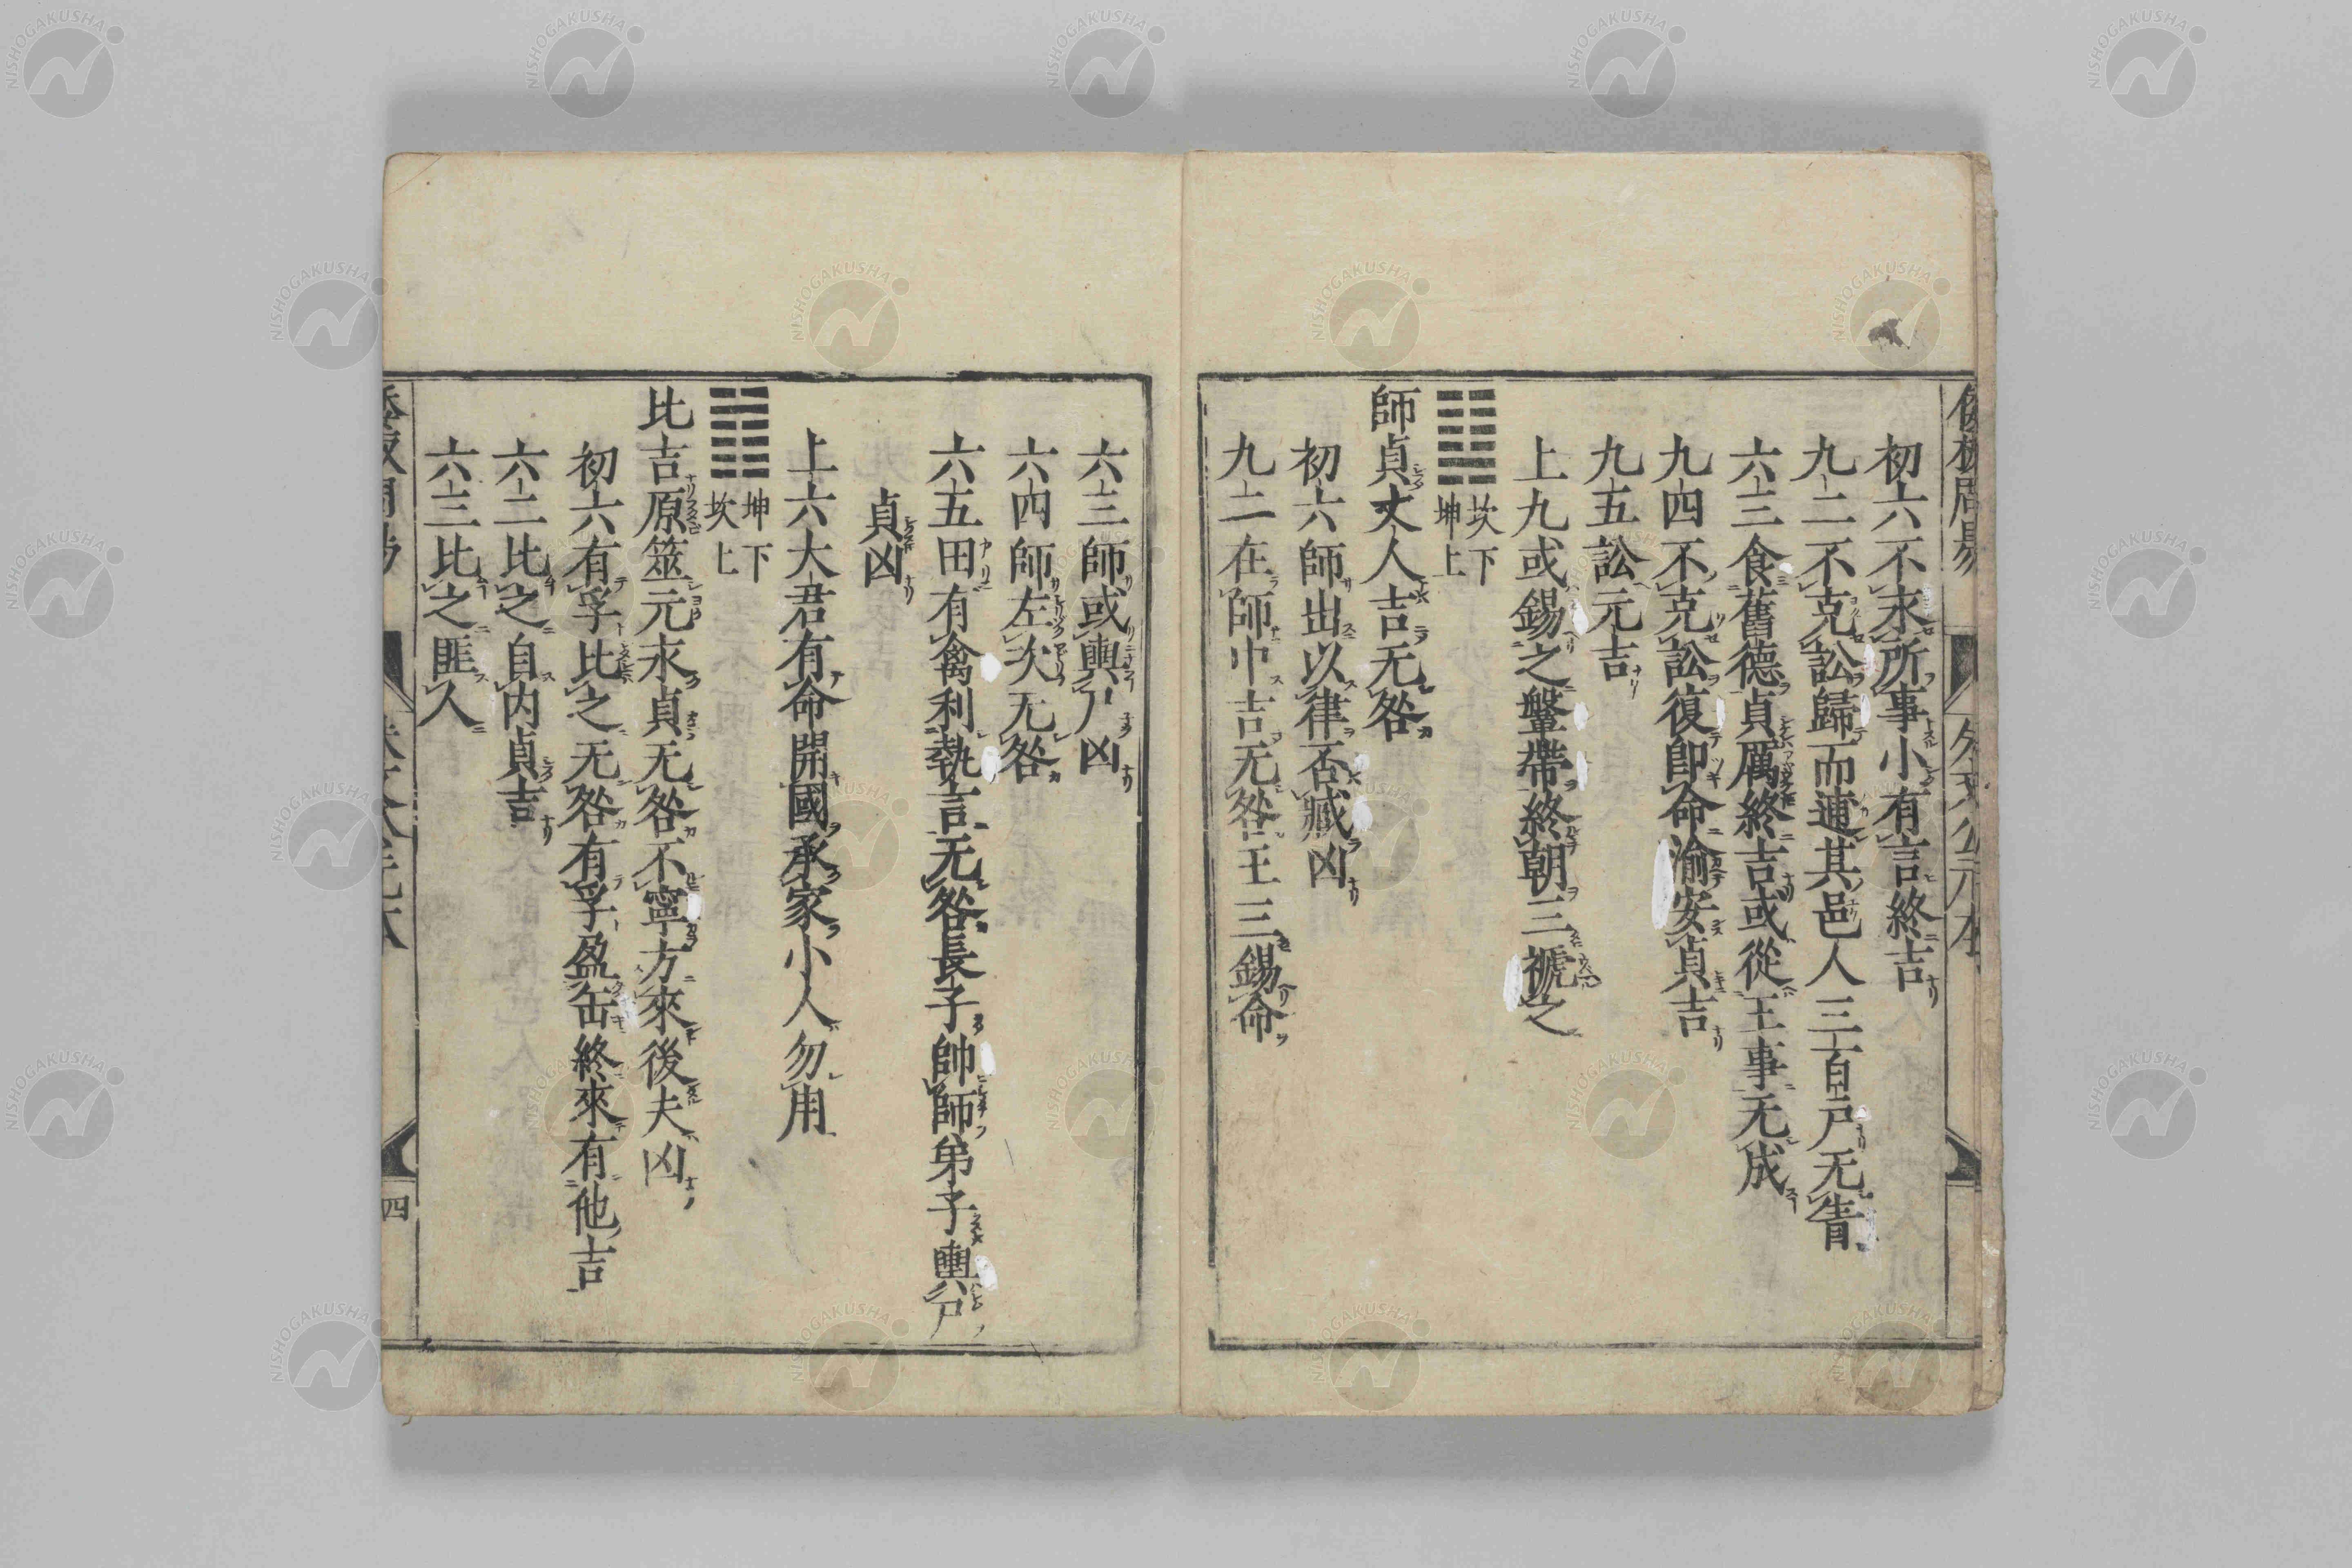 初六不永所事小有言終吉
九二不克訟歸而逋其邑人三百戸无眚
六三食舊德貞厲終吉或從王事无成
九四不克訟復即命渝安貞吉
九五訟元吉
上九或錫之鞶帶終朝三褫之
坎下
坤上
師貞丈人吉无咎
初六師出以律否臧凶
九二在師中吉无咎王三錫命
六三師或輿尸凶
六四師左次无咎
六五田有禽利執言无咎長子帥師弟子輿尸
貞凶
上六大君有命開國承家小人勿用
坤下
坎上
比吉原筮元永貞无咎不寧方來後夫凶
初六有孚比之无咎有孚盈缶終來有他吉
六二比之自内貞吉
六三比之匪人
四